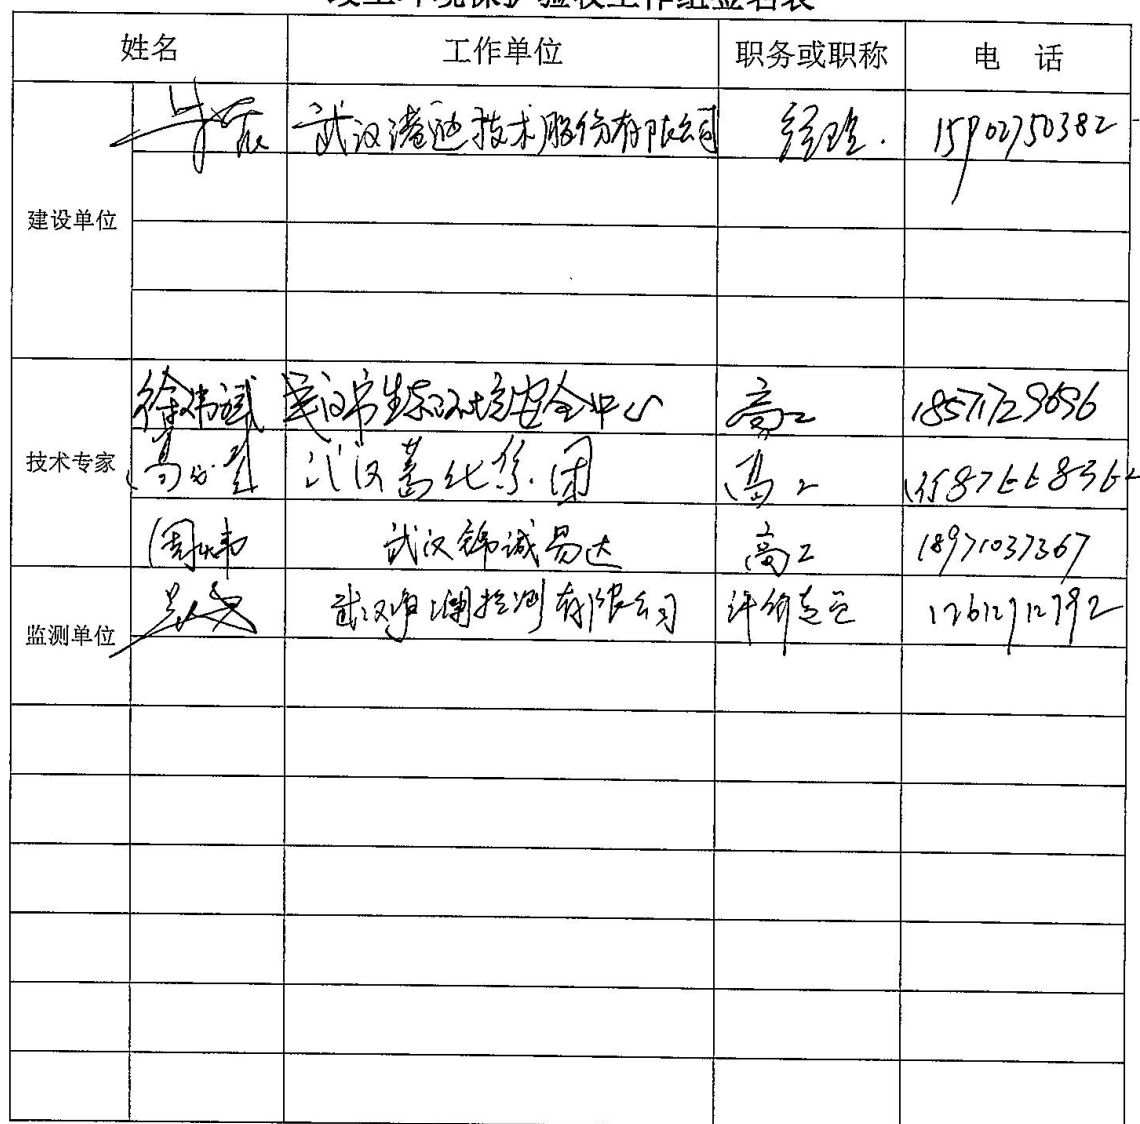 竣工环境保护验收工作组签名表
姓名 工作单位 职务或职称 电 话
建设单位 武汉港迪技术股份有限公司 经理. 15902750382
技术专家
徐伟斌 武汉市生态环境安全中心 高工 18571729696
武汉葛化集团 高工
周炜 武汉锦诚易达 高工 18971037367
监测单位 武汉净澜检测有限公司